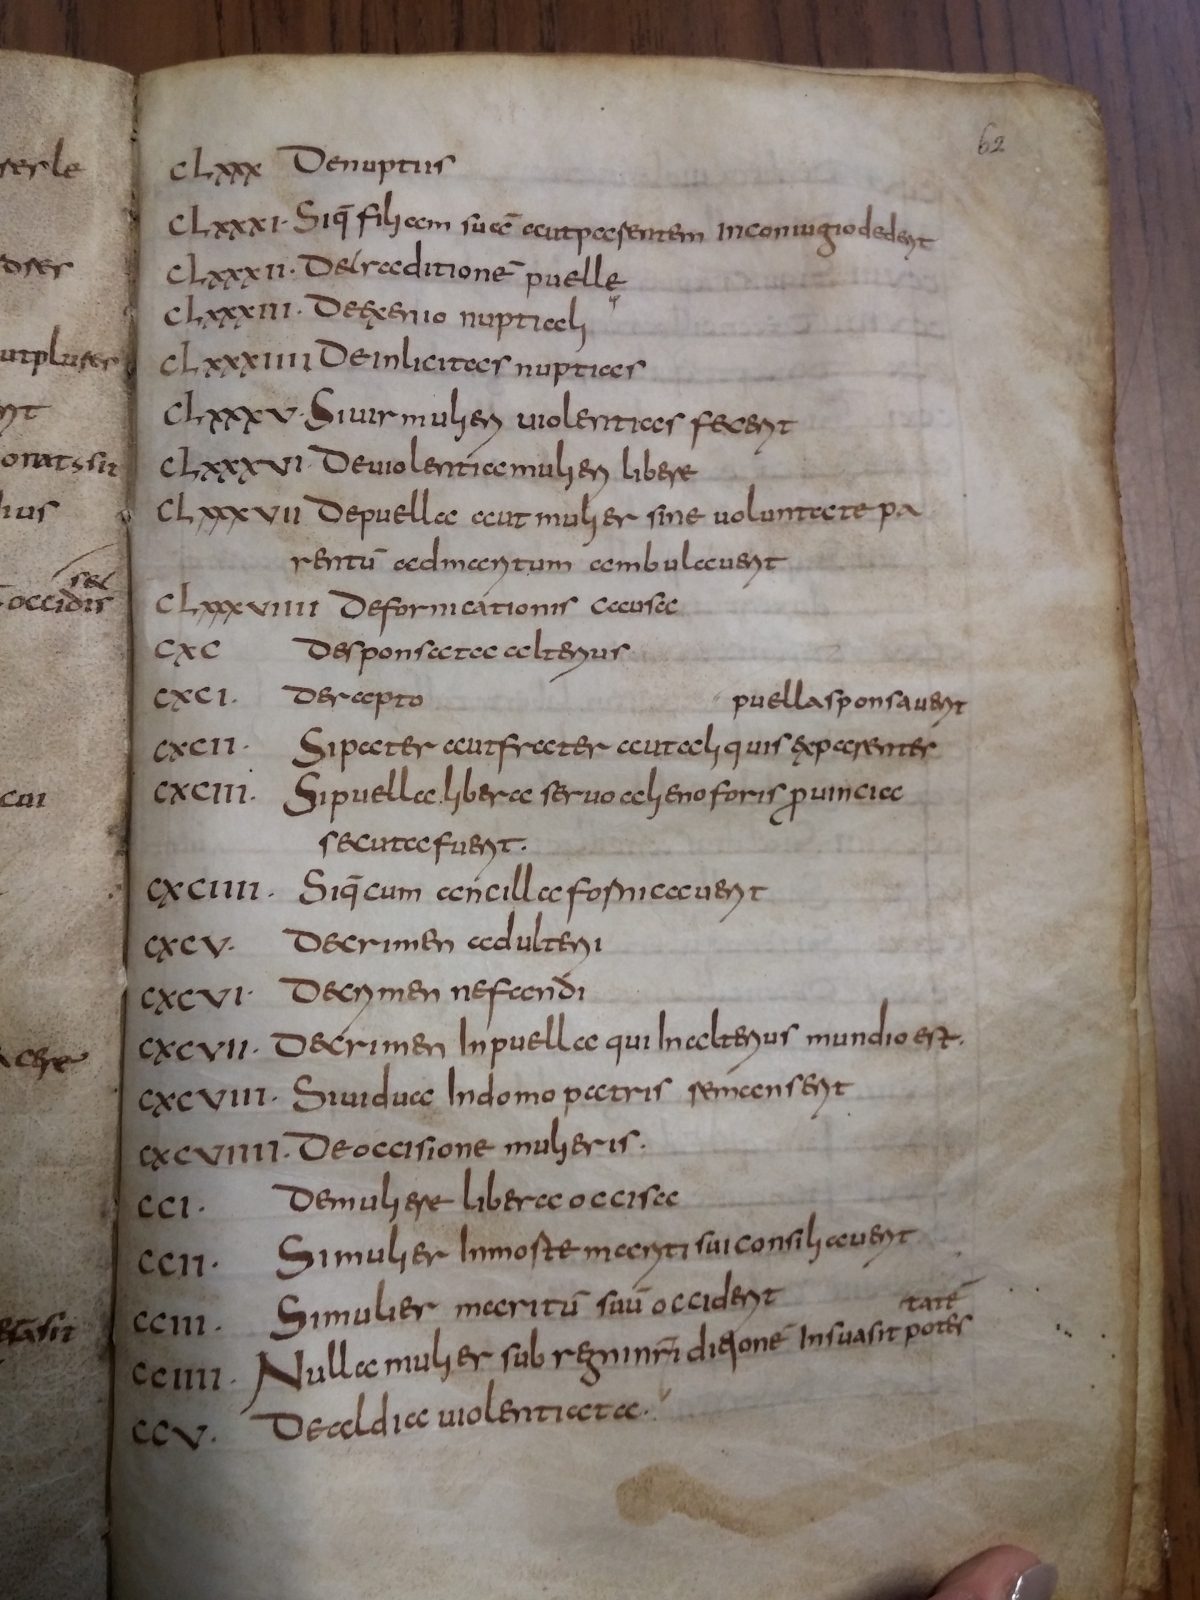 serle
62
CLxxx Denuptiis
CLxxxI· Siq̄ filiam suā aut parentem In coniugio dederit
oser
CLxxxII· De traditionē puelle
CLxxxIII· De exenio nuptiali
utpluser
CLxxxIIII De inlicitas nuptias
CLxxxV· Si uir mulieri uiolentias fecerit
CLxxxVI· De uiolentia mulieri libere
CLxxxVII De puella aut mulier sine uoluntate pa
lius
rentū ad maritum ambulauerit
sec
occidis
CLxxxVIIII De fornicationis causa
CxC De sponsata alterius
CxCI· De rapto puella sponsauerit
CxCII· Si pater aut frater aut aliquis ex parentes
CxCIII· Si puella libera seruo alieno foris ꝓuincia
secuta fuerit·
CxCIIII· Siq̄ cum ancilla fornicauerit
CxCV· De crimen adulteri
CxCVI· De crimen nefandi
CxCVII· De crimen In puella qui In alterius mundio est·
CxCVIII· Si uidua In domo patris remanserit
CxCVIIII· De occisione mulieris·
CCI· De muliere libera occisa
CCII· Si mulier In morte mariti sui consiliauerit
CCIII· Si mulier maritū suū occiderit
tatē
CCIIII· Nulla mulier sub regni nr̄i diqionē In sua sit potes
CCV· De aldia uiolentiata·